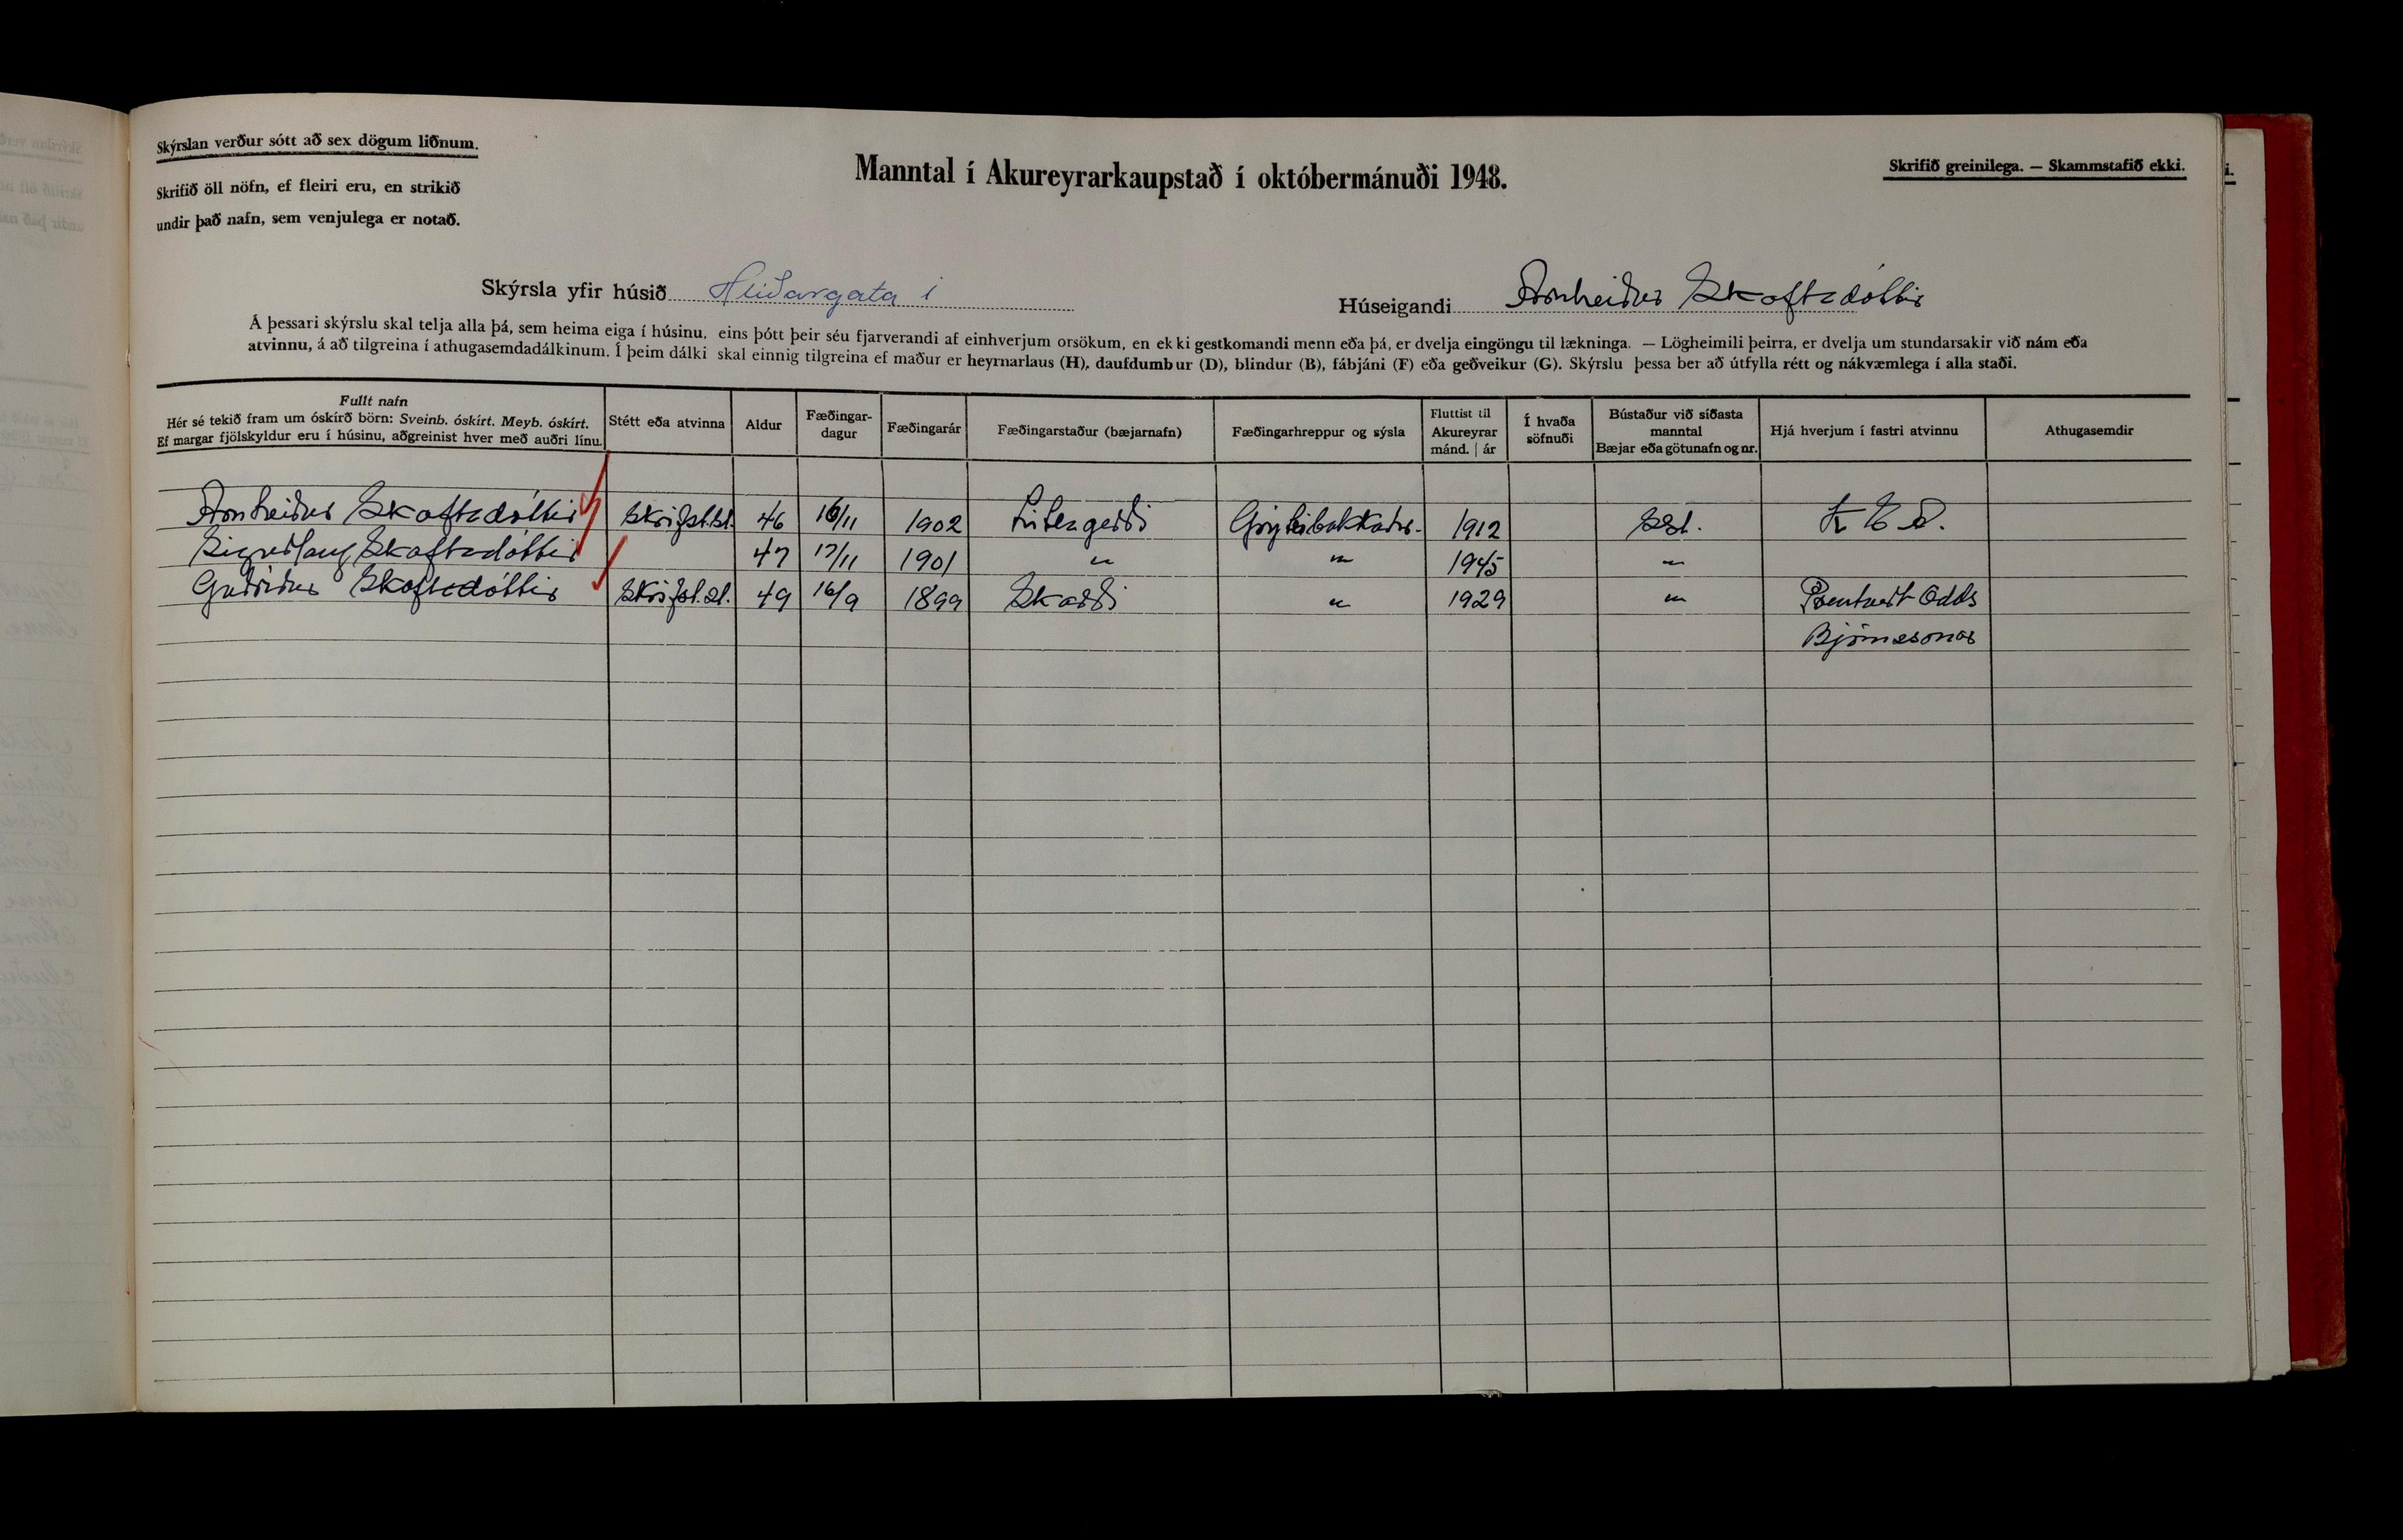 Skýrslan verður sótt að sex dögum liðnum.
Skrifið öll nöfn, ef fleiri eru, en strikið
undir það nafn, sem venjulega er notað.
Manntal í Akureyrarkaupstað í októbermánuði 1948.
Skrifið greinilega. — Skammstafið ekki.
Skýrsla yfir húsið Hlíðargata 1
Húseigandi Arnheiður Skaftadóttir
Á þessari skýrslu skal telja alla þá, sem heima eiga í húsinu, eins þótt þeir séu fjarverandi af einhverjum orsökum, en ekki gestkomandi menn eða þá, er dvelja eingöngu til lækninga. — Lögheimili þeirra, er dvelja um stundarsakir við nám eða
atvinnu, á að tilgreina í athugasemdadálkinum. Í þeim dálki skal einnig tilgreina ef maður er heyrnarlaus (H), daufdumbur (D), blindur (B), fábjáni (F) eða geðveikur (G). Skýrslu þessa ber að útfylla rétt og nákvæmlega í alla staði.
Fullt nafn
Hér sé tekið fram um óskírð börn: Sveinb. óskírt. Meyb. óskírt.
Ef margar fjölskyldur eru í húsinu, aðgreinist hver með auðri línu.
Stétt eða atvinna
Aldur
Fæðingar-
dagur
Fæðingarár
Fæðingarstaður (bæjarnafn)
Fæðingarhreppur og sýsla
Fluttist til
Akureyrar
mánd. | ár
Í hvaða
söfnuði
Bústaður við síðasta
manntal
Bæjar eða götunafn og nr.
Hjá hverjum í fastri atvinnu
Athugasemdir
Arnheiður Skaftadóttir skrifst.st. 46 16/11 1902 Litlagerði Grýtubakkahr. 1912 K E A.
Sigurlaug Skaftadóttir 47 17/11 1901 " " 1945 "
Guðríður Skaftadóttir skrifst.st. 49 16/9 1899 Skarði " 1929 " Prentverk Odds
Björnssonar